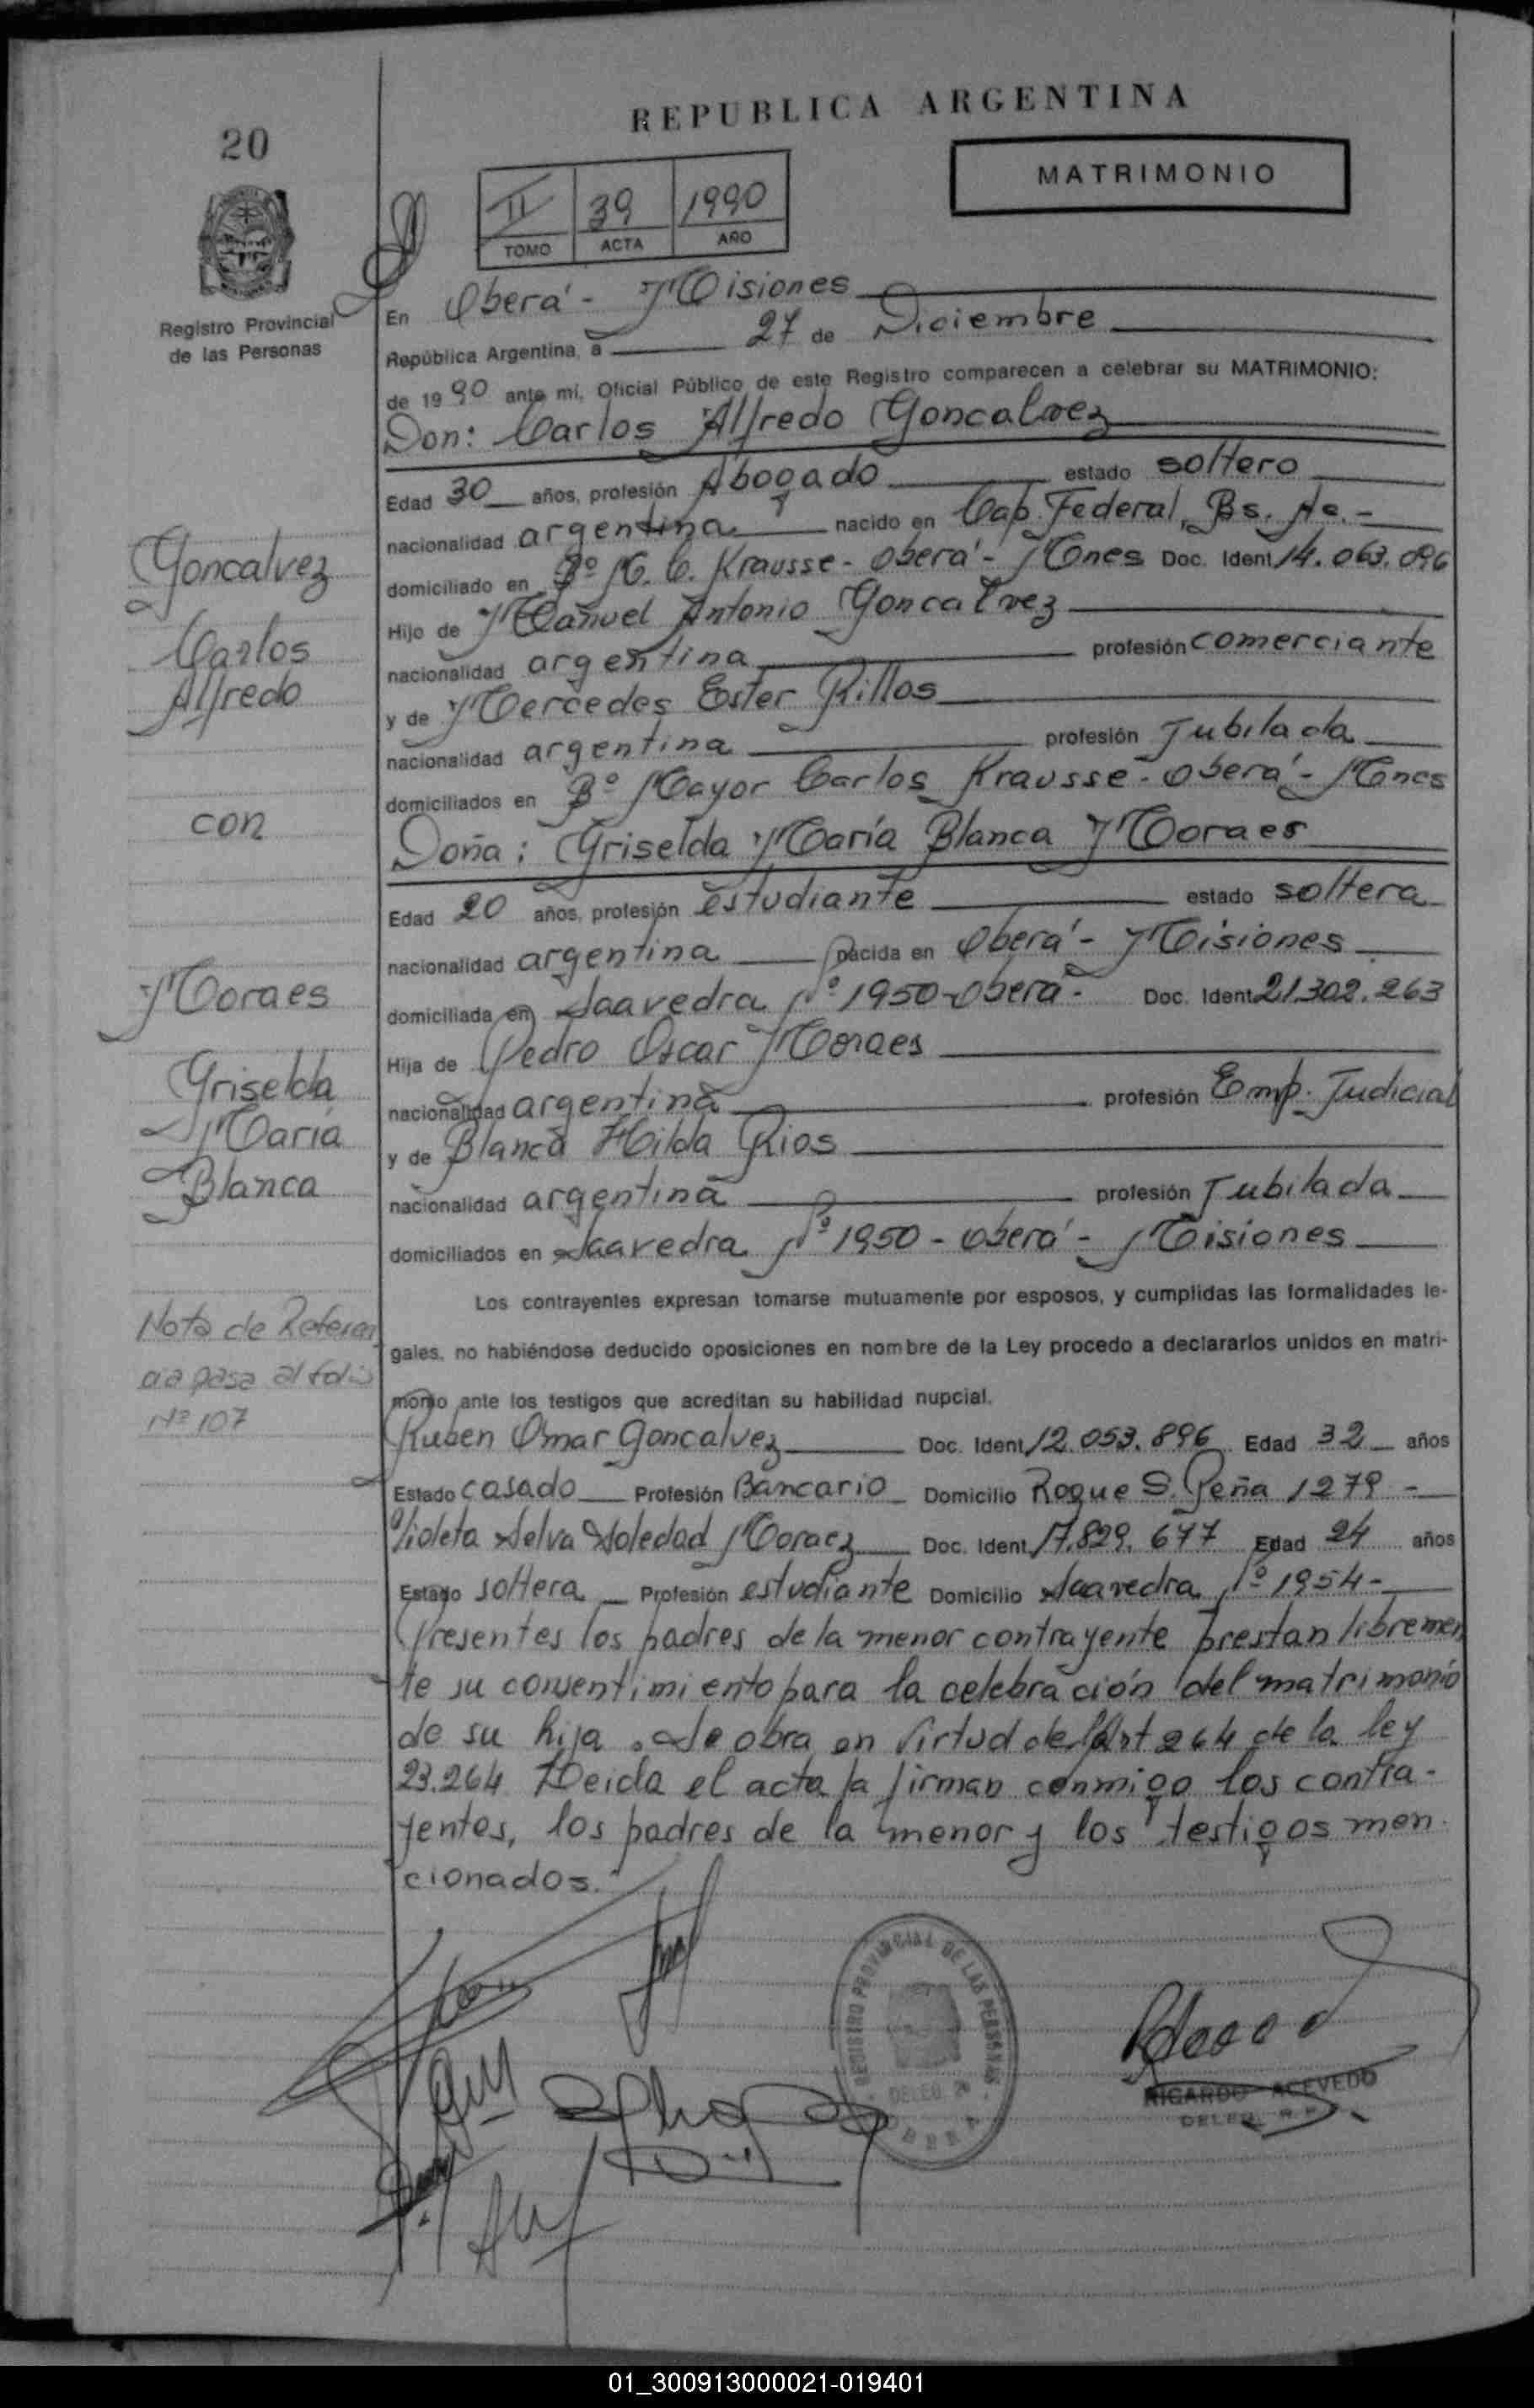 REPUBLICA ARGENTINA
20
MATRIMONIO
II 39 1990
TOMO ACTA AÑO
Registro Provincial
de las Personas
En Oberá - Misiones
República Argentina, a 27 de Diciembre
de 1990 ante mi, Oficial Público de este Registro comparecen a celebrar su MATRIMONIO:
Don: Carlos Alfredo Goncalvez
Edad 30 años, profesión Abogado estado soltero
nacionalidad argentina nacido en Cap. Federal, Bs. As. -
domiciliado en Bº M. C. Krausse - Oberá - Mnes Doc. Ident 14.063.096
Hijo de Manuel Antonio Goncalvez
nacionalidad argentina profesión comerciante
y de Mercedes Ester Rillos
nacionalidad argentina profesión Jubilada
domiciliados en Bº Mayor Carlos Krausse - Oberá - Mnes
Doña: Griselda María Blanca Moraes
Edad 20 años, profesión estudiante estado soltera
nacionalidad argentina nacida en Oberá - Misiones
domiciliada en Saavedra Nº 1950 - Oberá - Doc. Ident 21.302.263
Hija de Pedro Oscar Moraes
nacionalidad argentina profesión Emp. Judicial
y de Blanca Hilda Rios
nacionalidad argentina profesión Jubilada
domiciliados en Saavedra Nº 1950 - Oberá - Misiones
Los contrayentes expresan tomarse mutuamente por esposos, y cumplidas las formalidades le-
gales, no habiéndose deducido oposiciones en nombre de la Ley procedo a declararlos unidos en matri-
monio ante los testigos que acreditan su habilidad nupcial.
Ruben Omar Goncalvez Doc. Ident 12.053.896 Edad 32 años
Estado casado Profesión Bancario Domicilio Roque S. Peña 1279 -
Violeta Selva Soledad Moraez Doc. Ident. 17.829.677 Edad 24 años
Estado soltera Profesión estudiante Domicilio Saavedra Nº 1954 -
Presentes los padres de la menor contrayente prestan libremen
te su consentimiento para la celebración del matrimonio
de su hija. Se obra en virtud del Art 264 de la ley
23.264 Leida el acta la firman conmigo los contra-
yentes, los padres de la menor y los testigos men-
cionados.
Goncalvez
Carlos
Alfredo
con
Moraes
Griselda
María
Blanca
Nota de Referen
cia pasa al folio
Nº 107
REGISTRO PROVINCIAL DE LAS PERSONAS
DELEG.
OBERA
RICARDO ACEVEDO
01_300913000021-019401